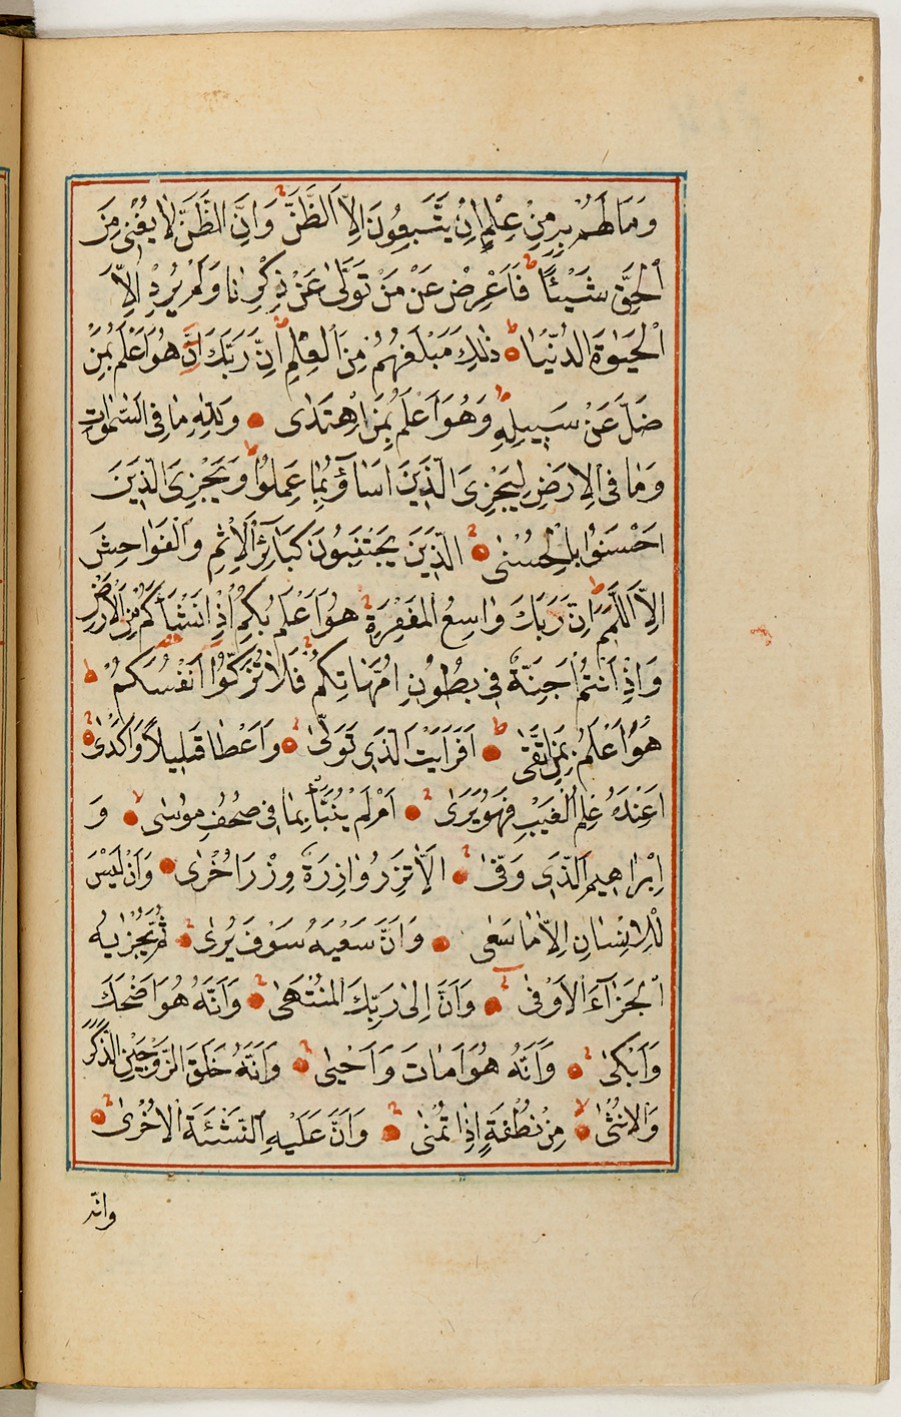 وَمَا لَهُمْ بِهِ مِنْ عِلْمٍ اِنْ يَتَّبِعُونَ اِلَّا الظَّنَّ وَاِنَّ الظَّنَّ لَا يُغْنِى مِنَ
الْحَقِّ شَيْئًا فَاَعْرِضْ عَنْ مَنْ تَوَلّٰى عَنْ ذِكْرِنَا وَلَمْ يُرِدْ اِلَّا
الْحَيٰوةَ الدُّنْيَا ذٰلِكَ مَبْلَغُهُمْ مِنَ الْعِلْمِ اِنَّ رَبَّكَ هُوَ اَعْلَمُ بِمَنْ
ضَلَّ عَنْ سَبِيلِهِ وَهُوَ اَعْلَمُ بِمَنِ اهْتَدٰى وَلِلّٰهِ مَا فِى السَّمٰوَاتِ
وَمَا فِى الْاَرْضِ لِيَجْزِىَ الَّذِينَ اَسَاؤُا بِمَا عَمِلُوا وَيَجْزِىَ الَّذِينَ
اَحْسَنُوا بِالْحُسْنٰى اَلَّذِينَ يَجْتَنِبُونَ كَبَائِرَ الْاِثْمِ وَالْفَوَاحِشَ
اِلَّا اللَّمَمَ اِنَّ رَبَّكَ وَاسِعُ الْمَغْفِرَةِ هُوَ اَعْلَمُ بِكُمْ اِذْ اَنْشَاَكُمْ مِنَ الْاَرْضِ
وَاِذْ اَنْتُمْ اَجِنَّةٌ فِى بُطُونِ اُمَّهَاتِكُمْ فَلَا تُزَكُّوا اَنْفُسَكُمْ
هُوَ اَعْلَمُ بِمَنِ اتَّقٰى اَفَرَاَيْتَ الَّذِى تَوَلّٰى وَاَعْطَا قَلِيلًا وَاَكْدٰى
اَعِنْدَهُ عِلْمُ الْغَيْبِ فَهُوَ يَرٰى اَمْ لَمْ يُنَبَّأْ بِمَا فِى صُحُفِ مُوسٰى وَ
اِبْرَاهِيمَ الَّذِى وَفّٰى اَلَّا تَزِرُ وَازِرَةٌ وِزْرَ اُخْرٰى وَاَنْ لَيْسَ
لِلْاِنْسَانِ اِلَّا مَا سَعٰى وَاَنَّ سَعْيَهُ سَوْفَ يُرٰى ثُمَّ يُجْزٰيهُ
الْجَزَاءَ الْاَوْفٰى وَاَنَّ اِلٰى رَبِّكَ الْمُنْتَهٰى وَاَنَّهُ هُوَ اَضْحَكَ
وَاَبْكٰى وَاَنَّهُ هُوَ اَمَاتَ وَاَحْيٰى وَاَنَّهُ خَلَقَ الزَّوْجَيْنِ الذَّكَرَ
وَالْاُنْثٰى مِنْ نُطْفَةٍ اِذَا تُمْنٰى وَاَنَّ عَلَيْهِ النَّشْئَةَ الْاُخْرٰى
وانّه